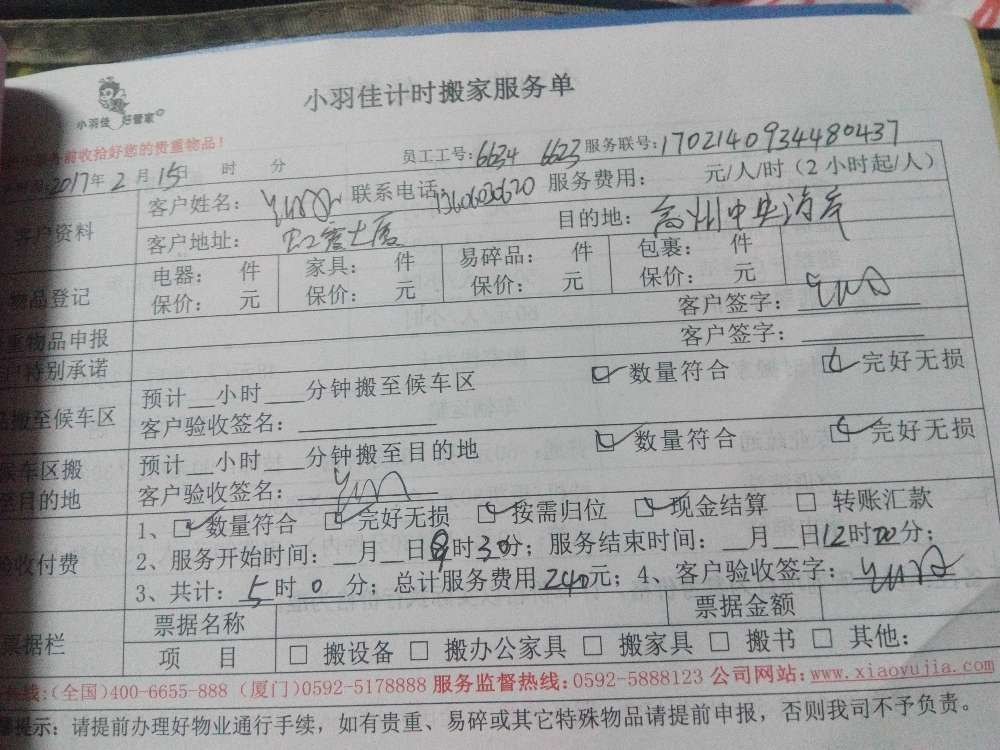 小羽佳计时搬家服务单
小羽佳 好管家
前收拾好您的贵重物品!
员工工号:6634 6623 服务联号:1702140934480437
2017年2月15日 时 分
客户资料 客户姓名: 联系电话 服务费用: 元/人/时(2小时起/人)
客户地址: 目的地: 中央海岸
物品登记 电器: 件 家具: 件 易碎品: 件 包裹: 件
保价: 元 保价: 元 保价: 元 保价: 元
重物品申报 客户签字:
户特别承诺 客户签字:
品搬至候车区 预计__小时___分钟搬至候车区 数量符合 完好无损
客户验收签名:
候车区搬 预计__小时___分钟搬至目的地 数量符合 完好无损
至目的地 客户验收签名:
验收付费 1、数量符合 完好无损 按需归位 现金结算 转账汇款
2、服务开始时间:__月__日 时30分;服务结束时间:__月__日12时00分;
3、共计:5时0分;总计服务费用240元;4、客户验收签字:
票据栏 票据名称 票据金额
项 目 □ 搬设备 □ 搬办公家具 □ 搬家具 □ 搬书 □ 其他:
线:(全国)400-6655-888 (厦门)0592-5178888 服务监督热线:0592-5888123 公司网站:www.xiaoyujia.com
提示:请提前办理好物业通行手续,如有贵重、易碎或其它特殊物品请提前申报,否则我司不予负责。